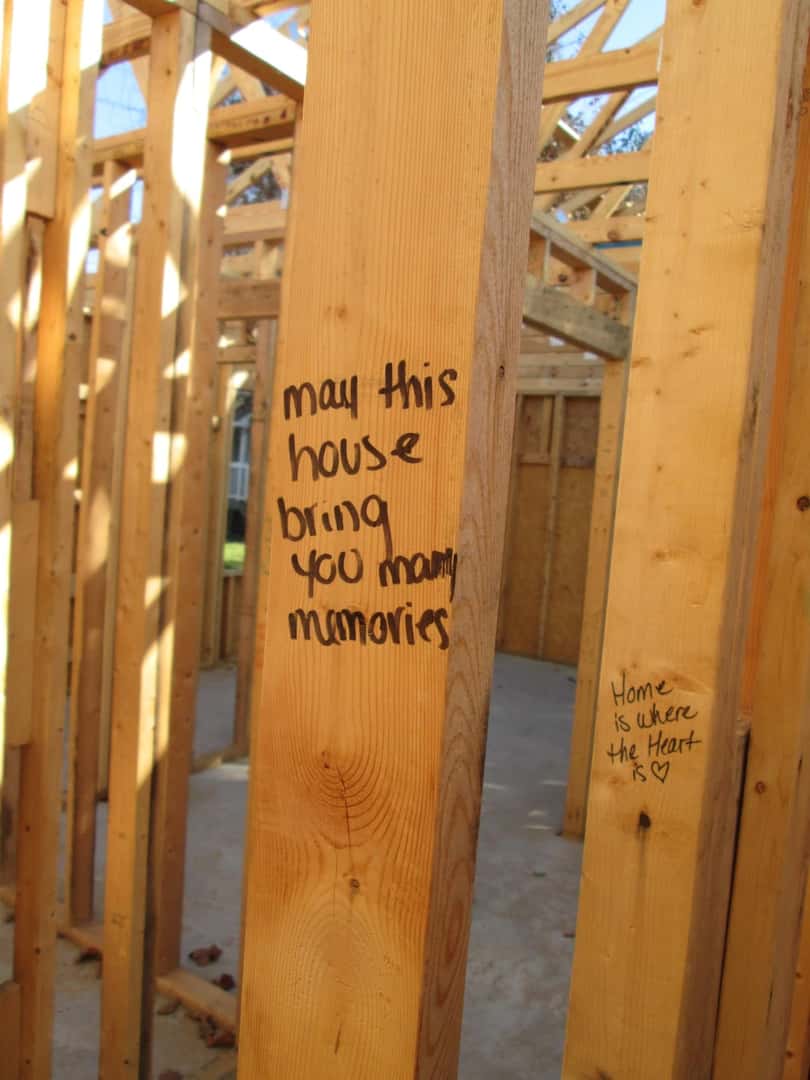 may this
house
bring
you many
memories
Home
is where
the Heart
is ♡